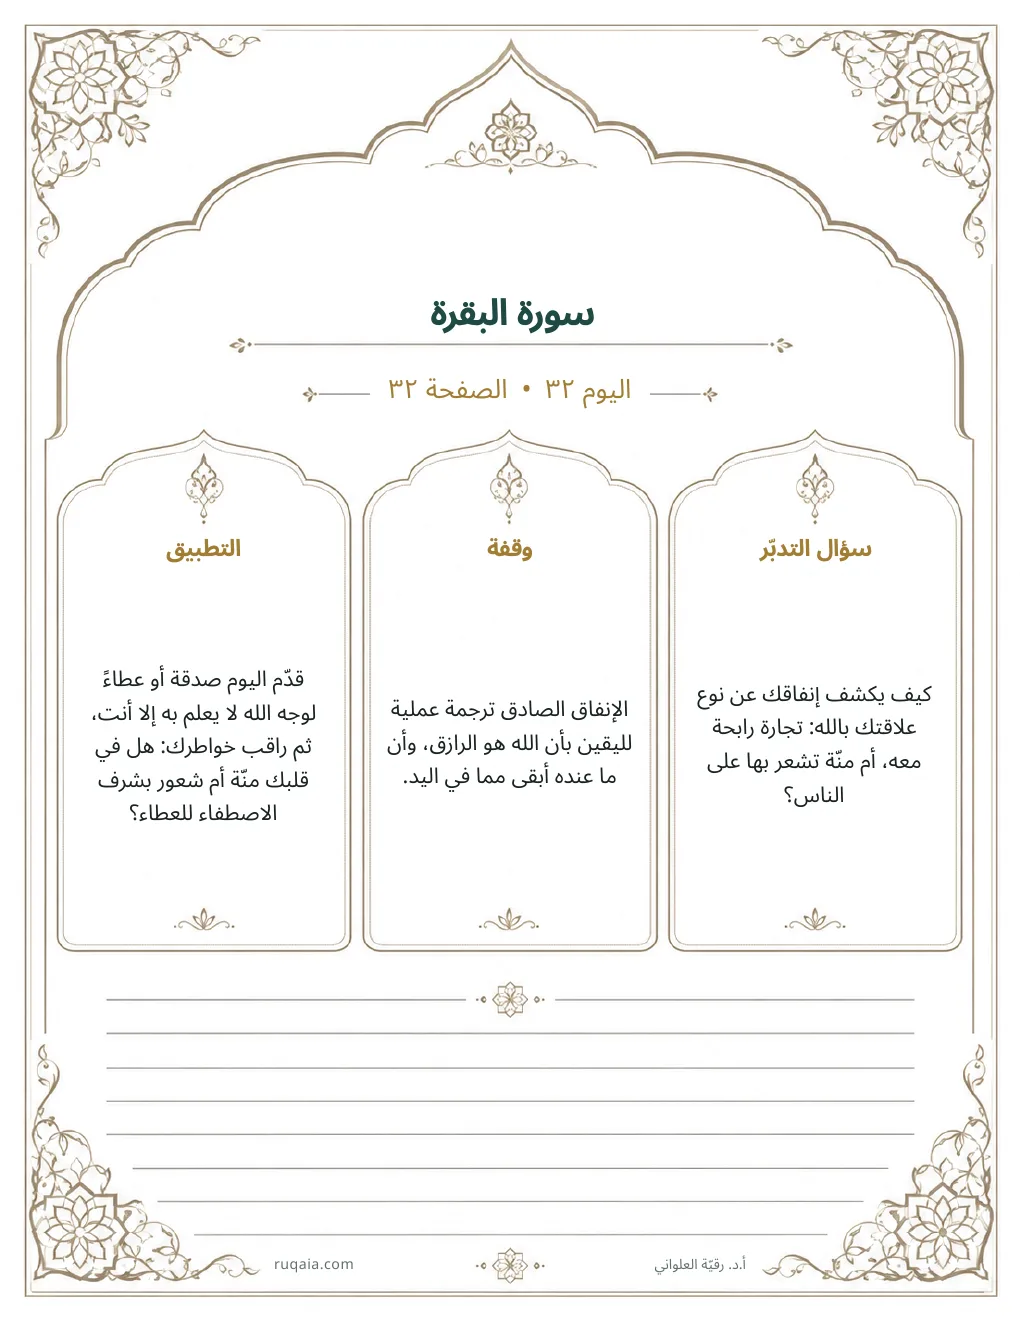 سورة البقرة
اليوم ٣٢ • الصفحة ٣٢
سؤال التدبّر
كيف يكشف إنفاقك عن نوع
علاقتك بالله: تجارة رابحة
معه، أم منّة تشعر بها على
الناس؟
وقفة
الإنفاق الصادق ترجمة عملية
لليقين بأن الله هو الرازق، وأن
ما عنده أبقى مما في اليد.
التطبيق
قدّم اليوم صدقة أو عطاءً
لوجه الله لا يعلم به إلا أنت،
ثم راقب خواطرك: هل في
قلبك منّة أم شعور بشرف
الاصطفاء للعطاء؟
أ.د. رقيّة العلواني
ruqaia.com